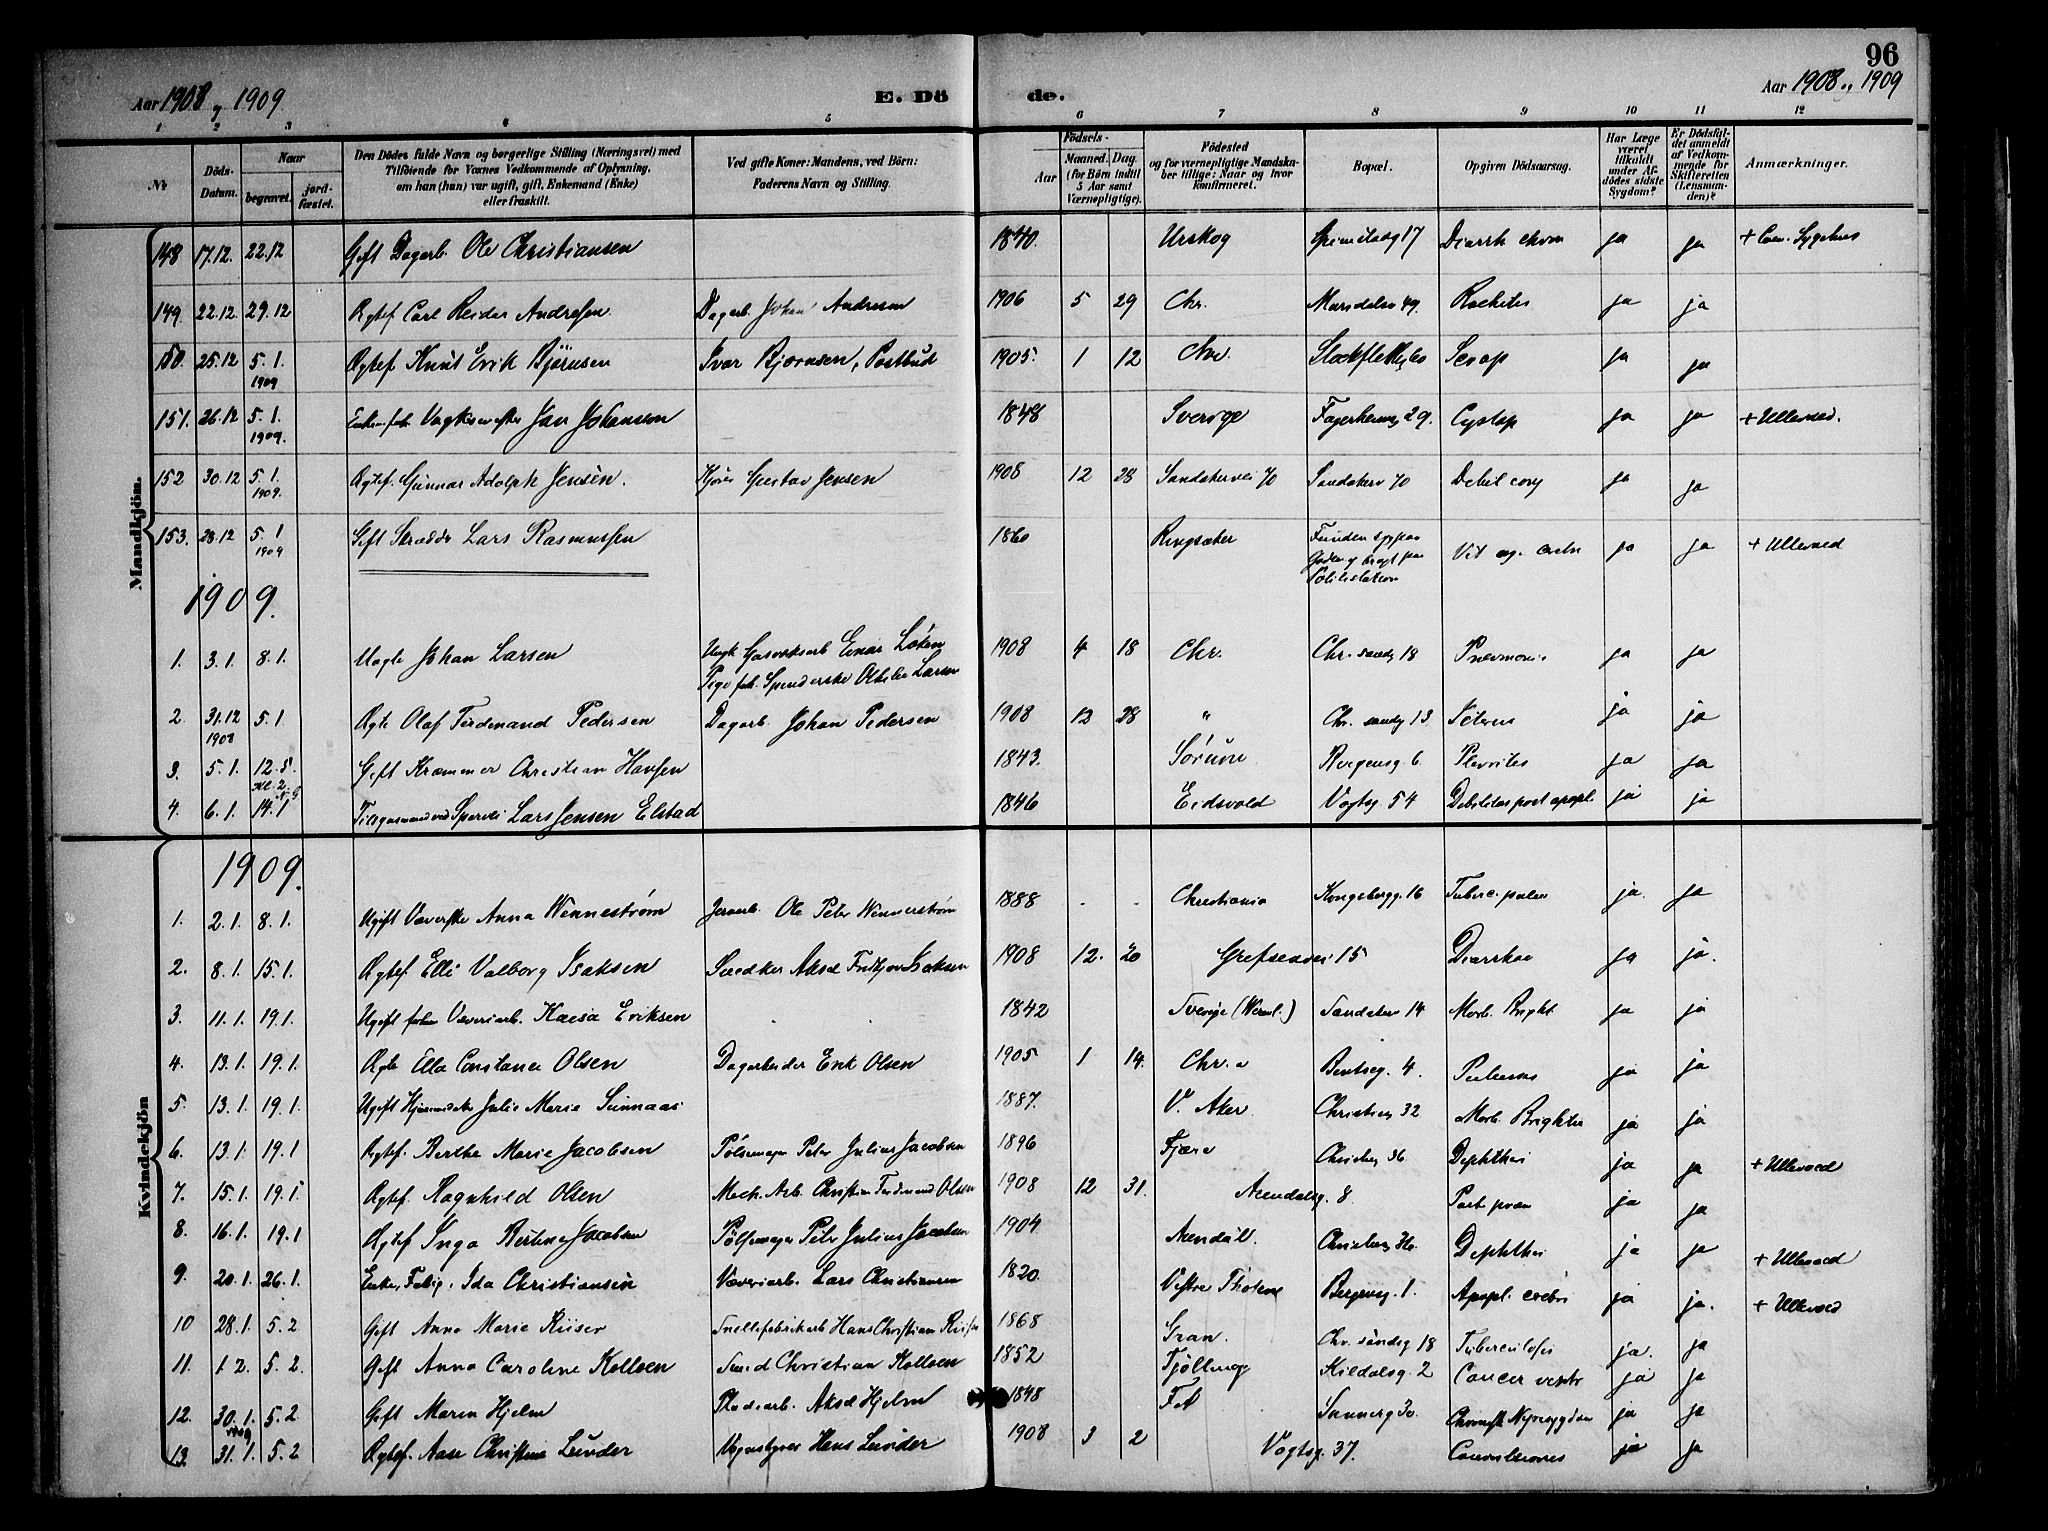 96
Aar 1908 og 1909
E. Döde.
Aar 1908 og 1909
1 2 3 4 5 6 7 8 9 10 11 12
No
Döds-Datum.
Naar begravet. jord-fæstet.
Den Dödes fulde Navn og borgerlige Stilling (Næringsvei) med Tilföiende for Voxnes Vedkommende af Oplysning, om han (hun) var ugift, gift, Enkemand (Enke) eller fraskilt.
Ved gifte Koner: Mandens, ved Börn: Faderens Navn og Stilling.
Födsels- Aar Maaned. Dag. (for Börn indtil 5 Aar samt Værnepligtige).
Födested og for værnepligtige Mandskaber tillige: Naar og hvor konfirmeret.
Bopæl.
Opgiven Dödsaarsag.
Har Læge været tilkaldt under Afdödes sidste Sygdom?
Er Dödsfaldet anmeldt af Vedkommende for Skifteretten (Lensmanden)?
Anmærkninger.
Mandkjön.
148 17.12. 22.12 Gift Dagarb. Ole Christiansen 1840. Urskog 17 ja ja
149. 22.12 29.12 Ægtef. Carl Reidar Andresen Dagarb. Johan Andresen 1906 5 29 Chr. Maridalsv 49. Rachitis ja ja
150. 25.12 5.1. 1909 Ægtef. Knut Erik Björnsen Ivar Bjørnsen, Postbud 1905. 1 12 Chr. ja ja
151. 26.12 5.1. 1909. Jan Johansson 1848 Sverige 29. ja ja + Ullevaal.
152 30.12 5.1. 1909. Ægtef. Gunnar Adolph Jensen. Gustav Jensen 1908 12 28 Sandakervei 70 Sandakerv 70 Debil. cong ja ja
153. 28.12 5.1 1909 Gift Skrædder Lars Rasmussen 1860 Ringsaker ja ja + Ullevaal
1909.
1. 3.1. 8.1. Uægte Johan Larsen Ungk Gasværksarb Einar Löken 1908 4 18 Chr. Chr. sandg 18 Pneumoni ja ja
Larsen
2 31.12 1908 5.1. Ægte Olaf Ferdinand Pedersen Dagarb. Johan Pedersen 1908 12 28 " Chr. sandg 13 Icterus ja ja
3. 5.1. 12.1. Kl. 2 Gift Kræmmer Christian Hansen 1843. Sörum. Bergensg. 6 Plevritis ja ja
4. 6.1. 14.1 Lars Jensen Elstad 1846 Eidsvold Vogtsg 54 Debilitas post apopl. ja ja
Kvindekjön
1909.
1. 2.1. 8.1. Ugift Væverske Anna Wennerström Jernarb. Ole Peter Wennerström 1888 - - Christiania Kongsbergg. 16 Tuberc. pulm ja. ja
2. 8.1. 15.1. Ægtef. Elli Valborg Isaksen Snedker Aksel Fritjov Isaksen 1908 12. 20 Grefsenvei 15 Diarrhoe ja ja.
3. 11.1. 19.1. Ugift Væveriarb. Kaisa Eriksen 1842 Sverige (Werml.) Sandakerv 14 Morb. Brighti ja ja
4. 13.1. 19.1. Ægte Ella Constance Olsen Dagarbeider Erik Olsen 1905 1 14. Chr.a Bentseg. 4. ja ja
5. 13.1. 19.1. Ugift Julie Marie Sunnaas 1887. V. Aker Christiesg 32 Morb. Brightii ja ja
6. 13.1. 19.1 Ægtef. Berthe Marie Jacobsen Pölsemager Peter Julius Jacobsen 1896 Fjære Christiesg 36 Diphtheri ja ja + Ullevaal
7. 15.1. 19.1 Ægtef. Ragnhild Olsen Mech. Arb. Christian Ferdinand Olsen 1908 12 31. Arendalsg. 8 Part. præm ja ja
8. 16.1. 19.1 Ægtef Inga Bertine Jacobsen Pölsemager Peter Julius Jacobsen 1904 Arendal. Christiesg 36. Diphtheri ja ja + Ullevaal
9. 20.1. 26.1. Enke, Fattig, Ida Christiansen Væveriarb. Lars Christiansen 1820. Vestre Thoten Bergensg. 1. Apopl. cerebri ja ja. + Ullevaal
10 28.1. 5.2 Gift Anne Marie Riiser Hans Christian Riiser 1868 Gran. Chr. sandsg 18 Tuberculose ja. ja
11. 1.2. 5.2. Gift Anna Caroline Kolloen Smed Christian Kolloen 1852 Tjölling Kildalsg. 2 Cancer ventr ja ja
12. 30.1. 1909 5.2 Gift Maren Hjelm Pladearb. Aksel Hjelm 1848 Fet Sannerg 30. Chronisk Nyresygdom ja ja
13. 31.1. 5.2 Ægtef. Aase Christine Lunder Vognstyrer Hans Lunder 1908 3 2 Vogtsg. 37. Convulsiones ja ja